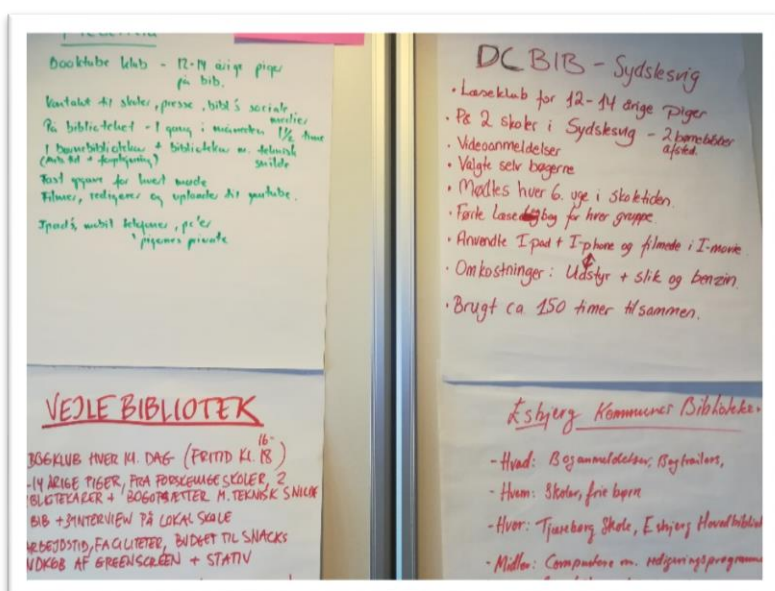 Booktube klub - 12-14 årige piger
på bib.
Kontakt til skoler, presse, bibl's sociale
medier
På biblioteket - 1 gang i måneden 1½ time
1 børnebibliotekar + bibliotekar m. teknisk
snilde
Fast opgave for hvert møde
Filmer, redigerer og uploader til youtube.
Ipad's, mobil telefoner, pc'er
pigernes private
VEJLE BIBLIOTEK
BOGKLUB HVER M. DAG (FRITID KL. 16-
18)
-14 ÅRIGE PIGER, FRA FORSKELLIGE SKOLER, 2
BLIOTEKARER + BOGOPSÆTTER M. TEKNISK SNILDE
BIB + INTERVIEW PÅ LOKAL SKOLE
ARBEJDSTID, FACILITETER, BUDGET TIL SNACKS
NDKØB AF GREENSCREEN + STATIV
DCBIB - Sydslesvig
• Læseklub for 12-14 årige piger
• På 2 skoler i Sydslesvig - 2 børnebibber
afsted.
• Videoanmeldelser
• Valgte selv bøgerne
• Mødtes hver 6. uge i skoletiden.
• Førte læse bog for hver gruppe
• Anvendte I pad + I-phone og filmede i I-movie
• Omkostninger: Udstyr + slik og benzin.
• Brugt ca 150 timer tilsammen.
Esbjerg Kommunes Biblioteker
- Hvad: Boganmeldelser, Bogtrailers,
- Hvem: Skoler, frie børn
- Hvor: Tjæreborg Skole, Esbjerg Hovedbibliot
- Midler: Computere m. redigeringsprogramme